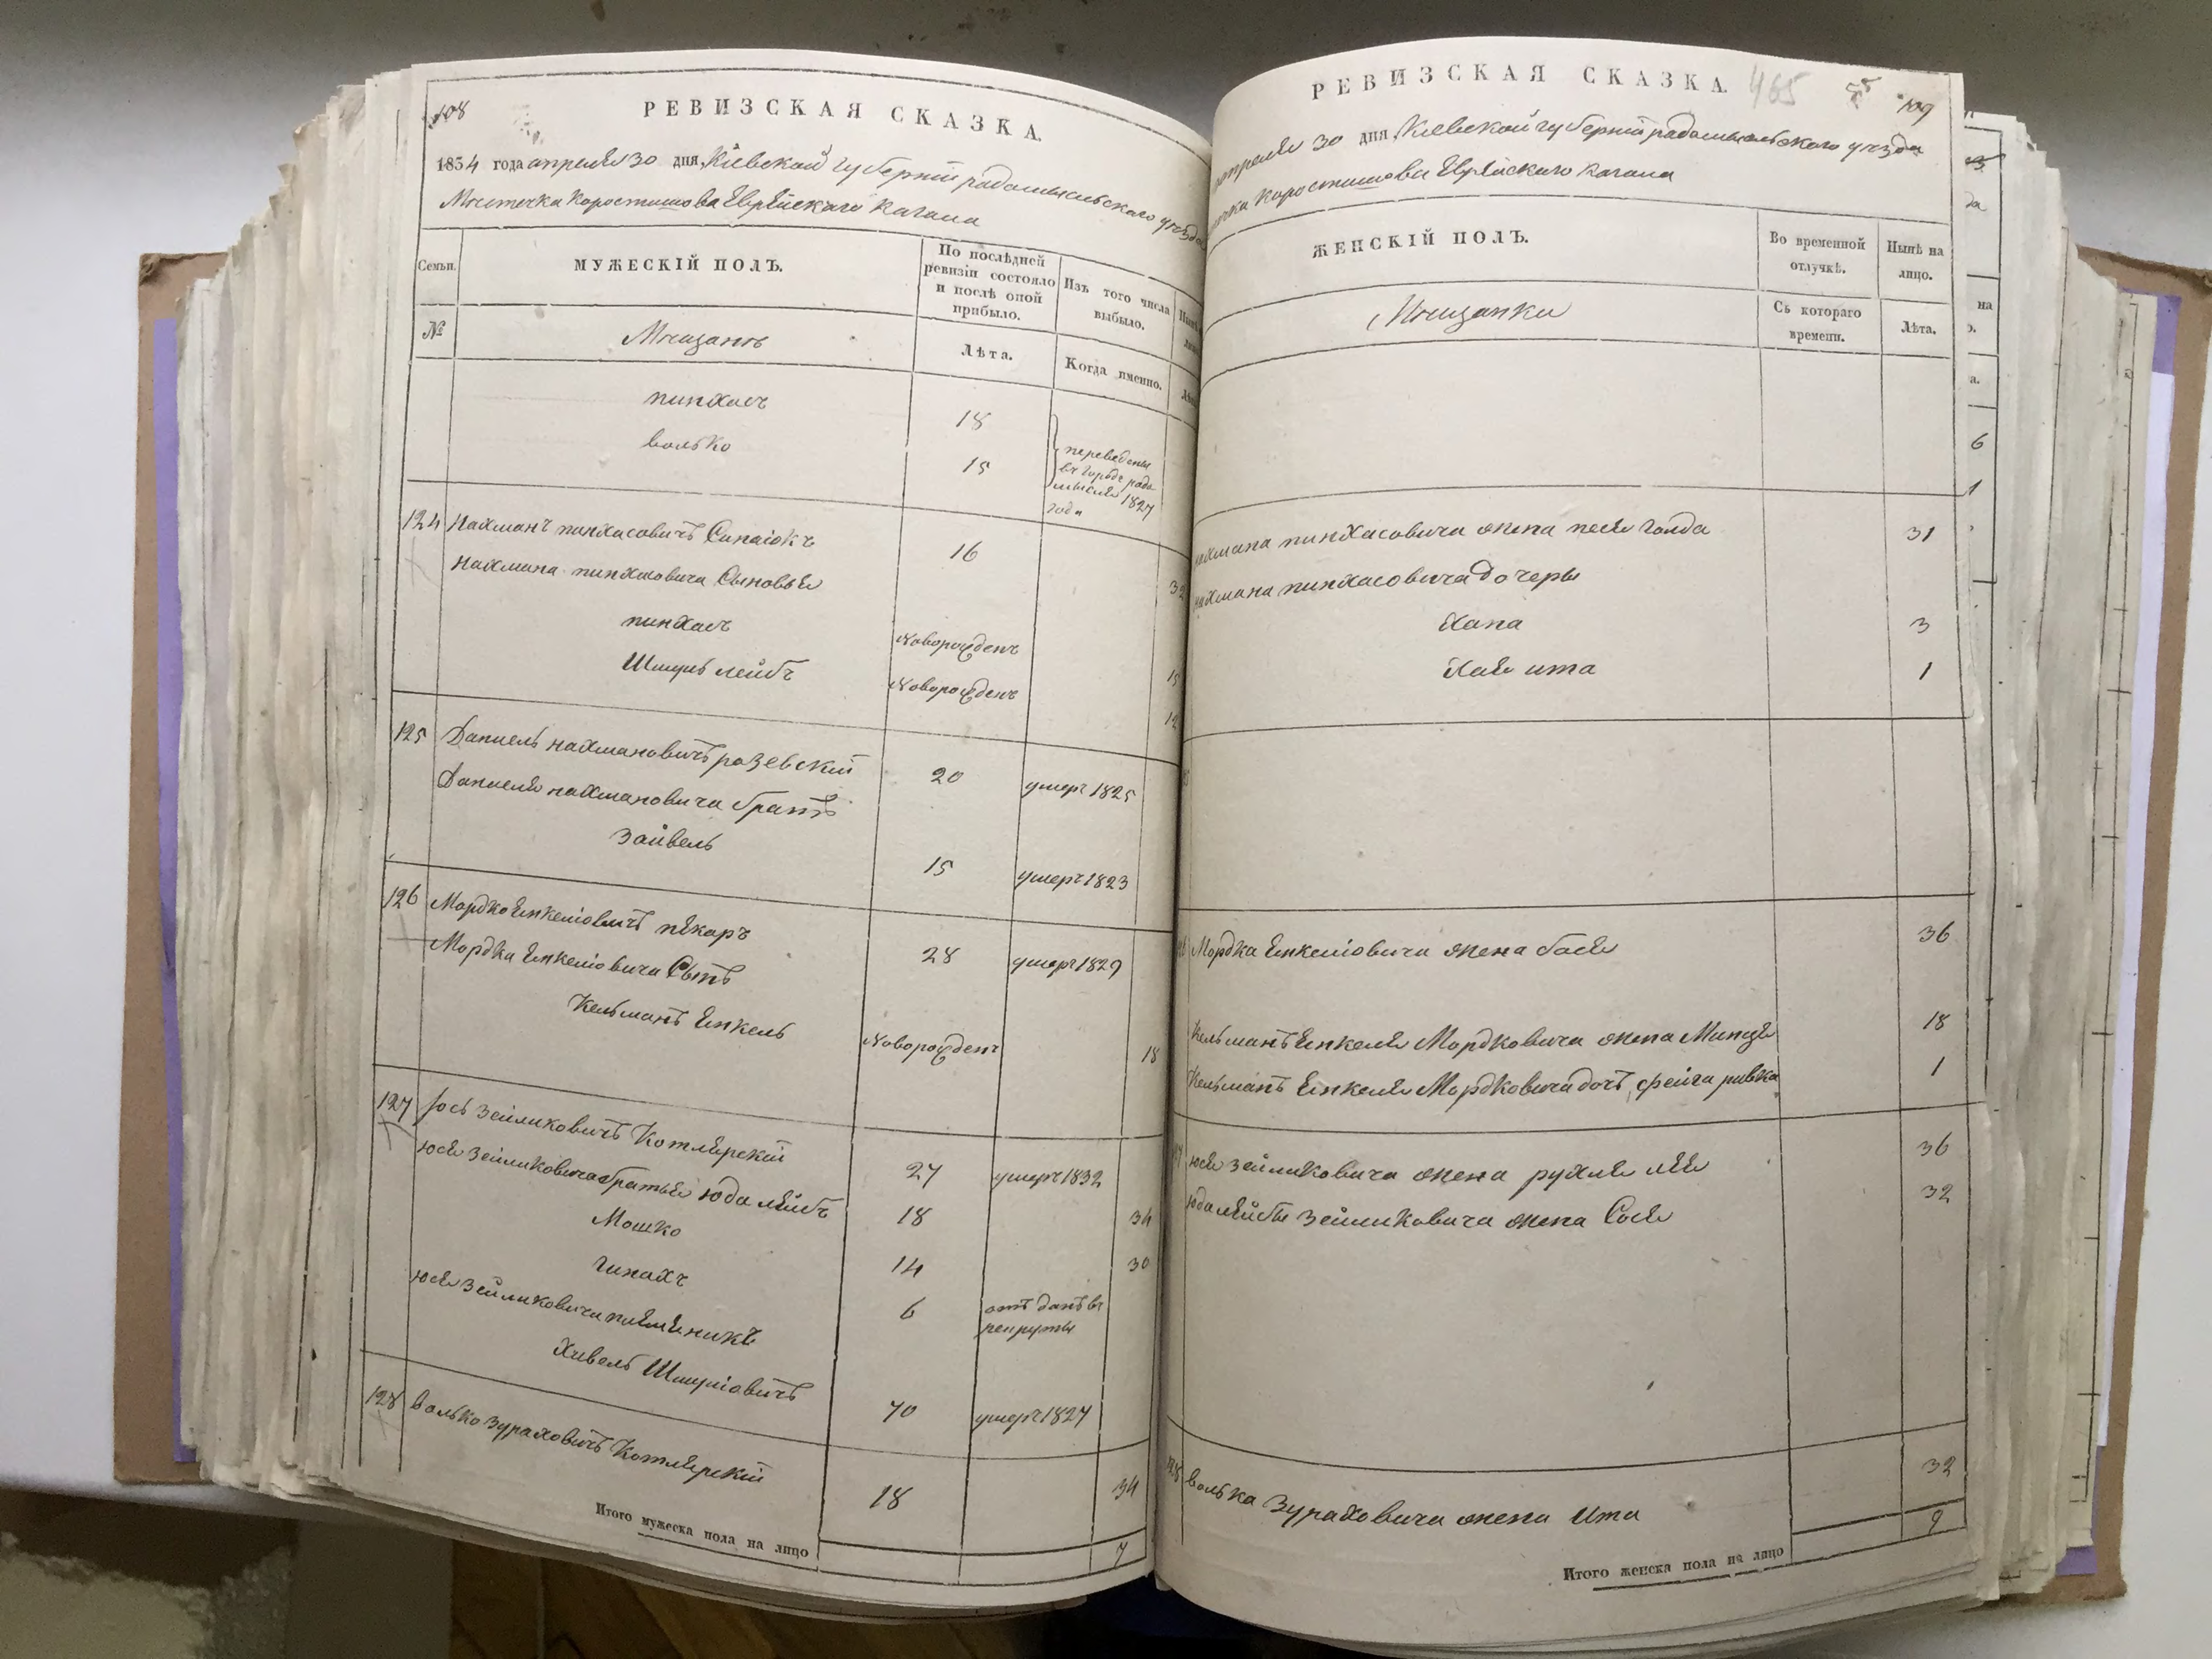 108
РЕВИЗСКАЯ СКАЗКА.
1834 года апреля 30 дня, Кіевской губерніи радомысльского уезда
Местечка Коростишова Еврейскаго кагала
Семьи.
МУЖЕСКІЙ ПОЛЪ.
По послѣдней ревизіи состояло и послѣ оной прибыло.
Изъ того числа выбыло.
№
Мещанъ
Лѣта.
Когда именно.
пинхасъ 18
волько 15
переведены
въ городъ радо
мысль 1827
года
124 Нахманъ пинхасовичъ Сипаіокъ 16 32
Нахмана пинхасовича Сыновья
пинхасъ новорожденъ 15
Шмуль лейбъ новорожденъ 12
125 Даниель нахмановичъ розевскій 20 умеръ 1825
Даниеля нахмановича братъ
Зайвель 15 умеръ 1823
126 Мордко Енкеліовичъ пекаръ 28 умеръ 1829
Мордка Енкеліовича Сынъ
Кельманъ Енкель новорожденъ 18
127 Іось зейликовичъ Котлярскій 27 умеръ 1832
юся зейликовича братья юда лейбъ 18 34
Мошко 14 30
гинахъ 6 отъ данъ въ
рекруты
юся зейликовича племеникъ
Хивель Шмуліовичъ 70 умеръ 1827
128 волько зураховичъ Котлярскій 18 34
Итого мужеска пола на лицо 7
РЕВИЗСКАЯ СКАЗКА.
465
109
апреля 30 дня, Кіевской губерніи радомысльского уезда
Коростишова Еврейскаго кагала
ЖЕНСКІЙ ПОЛЪ.
Во временной отлучкѣ.
Нынѣ на лицо.
Мещанки
Съ котораго времени.
Лѣта.
нахмана пинхасовича жена песя голда 31
нахмана пинхасовича дочеры
Хана 3
Хая ита 1
Мордка Енкеліовича жена бася 36
Кельманъ Енкеля Мордковича жена Минця 18
Кельманъ Енкеля Мордковича дочъ фейга ривка 1
юся зейликовича жена рухля лея 36
юда лейбы зейликовича жена Сося 32
128 волька зураховича жена Ита 32
Итого женска пола на лицо 9